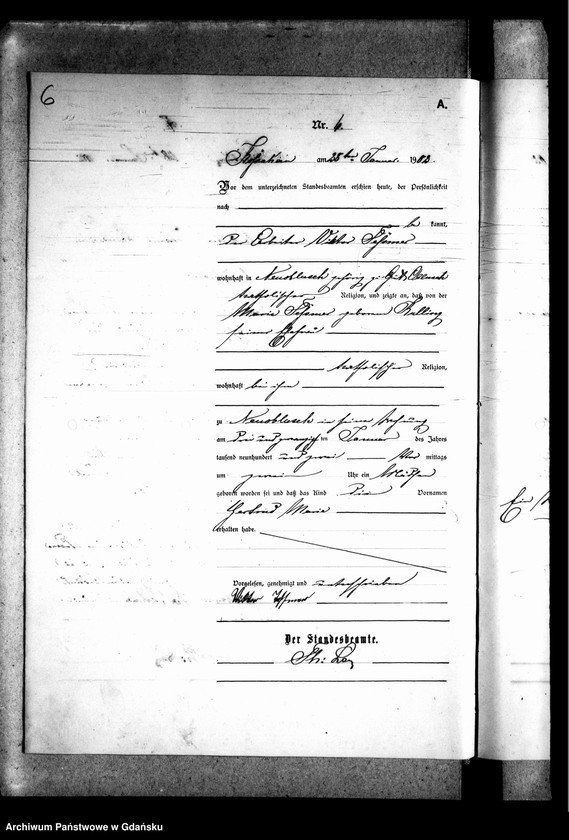 6
A.
Nr. 6.
am 25ten Januar 1902.
Vor dem unterzeichneten Standesbeamten erschien heute, der Persönlichkeit
nach
be kannt,
Der Arbeiter
wohnhaft in Neuoblusch gehörig zu Guts Oblusch
katholischer Religion, und zeigte an, daß von der
Maria geborenen
seiner Ehefrau
katholischer Religion,
wohnhaft bei ihm
zu Neuoblusch in seiner Wohnung
am drei und zwanzigsten Januar des Jahres
tausend neunhundert und zwei Vor mittags
um zwei Uhr ein Mädchen
geboren worden sei und daß das Kind die Vornamen
Gertrud Maria
erhalten habe.
Vorgelesen, genehmigt und unterschrieben
Der Standesbeamte.
Ein
Archiwum Państwowe w Gdańsku